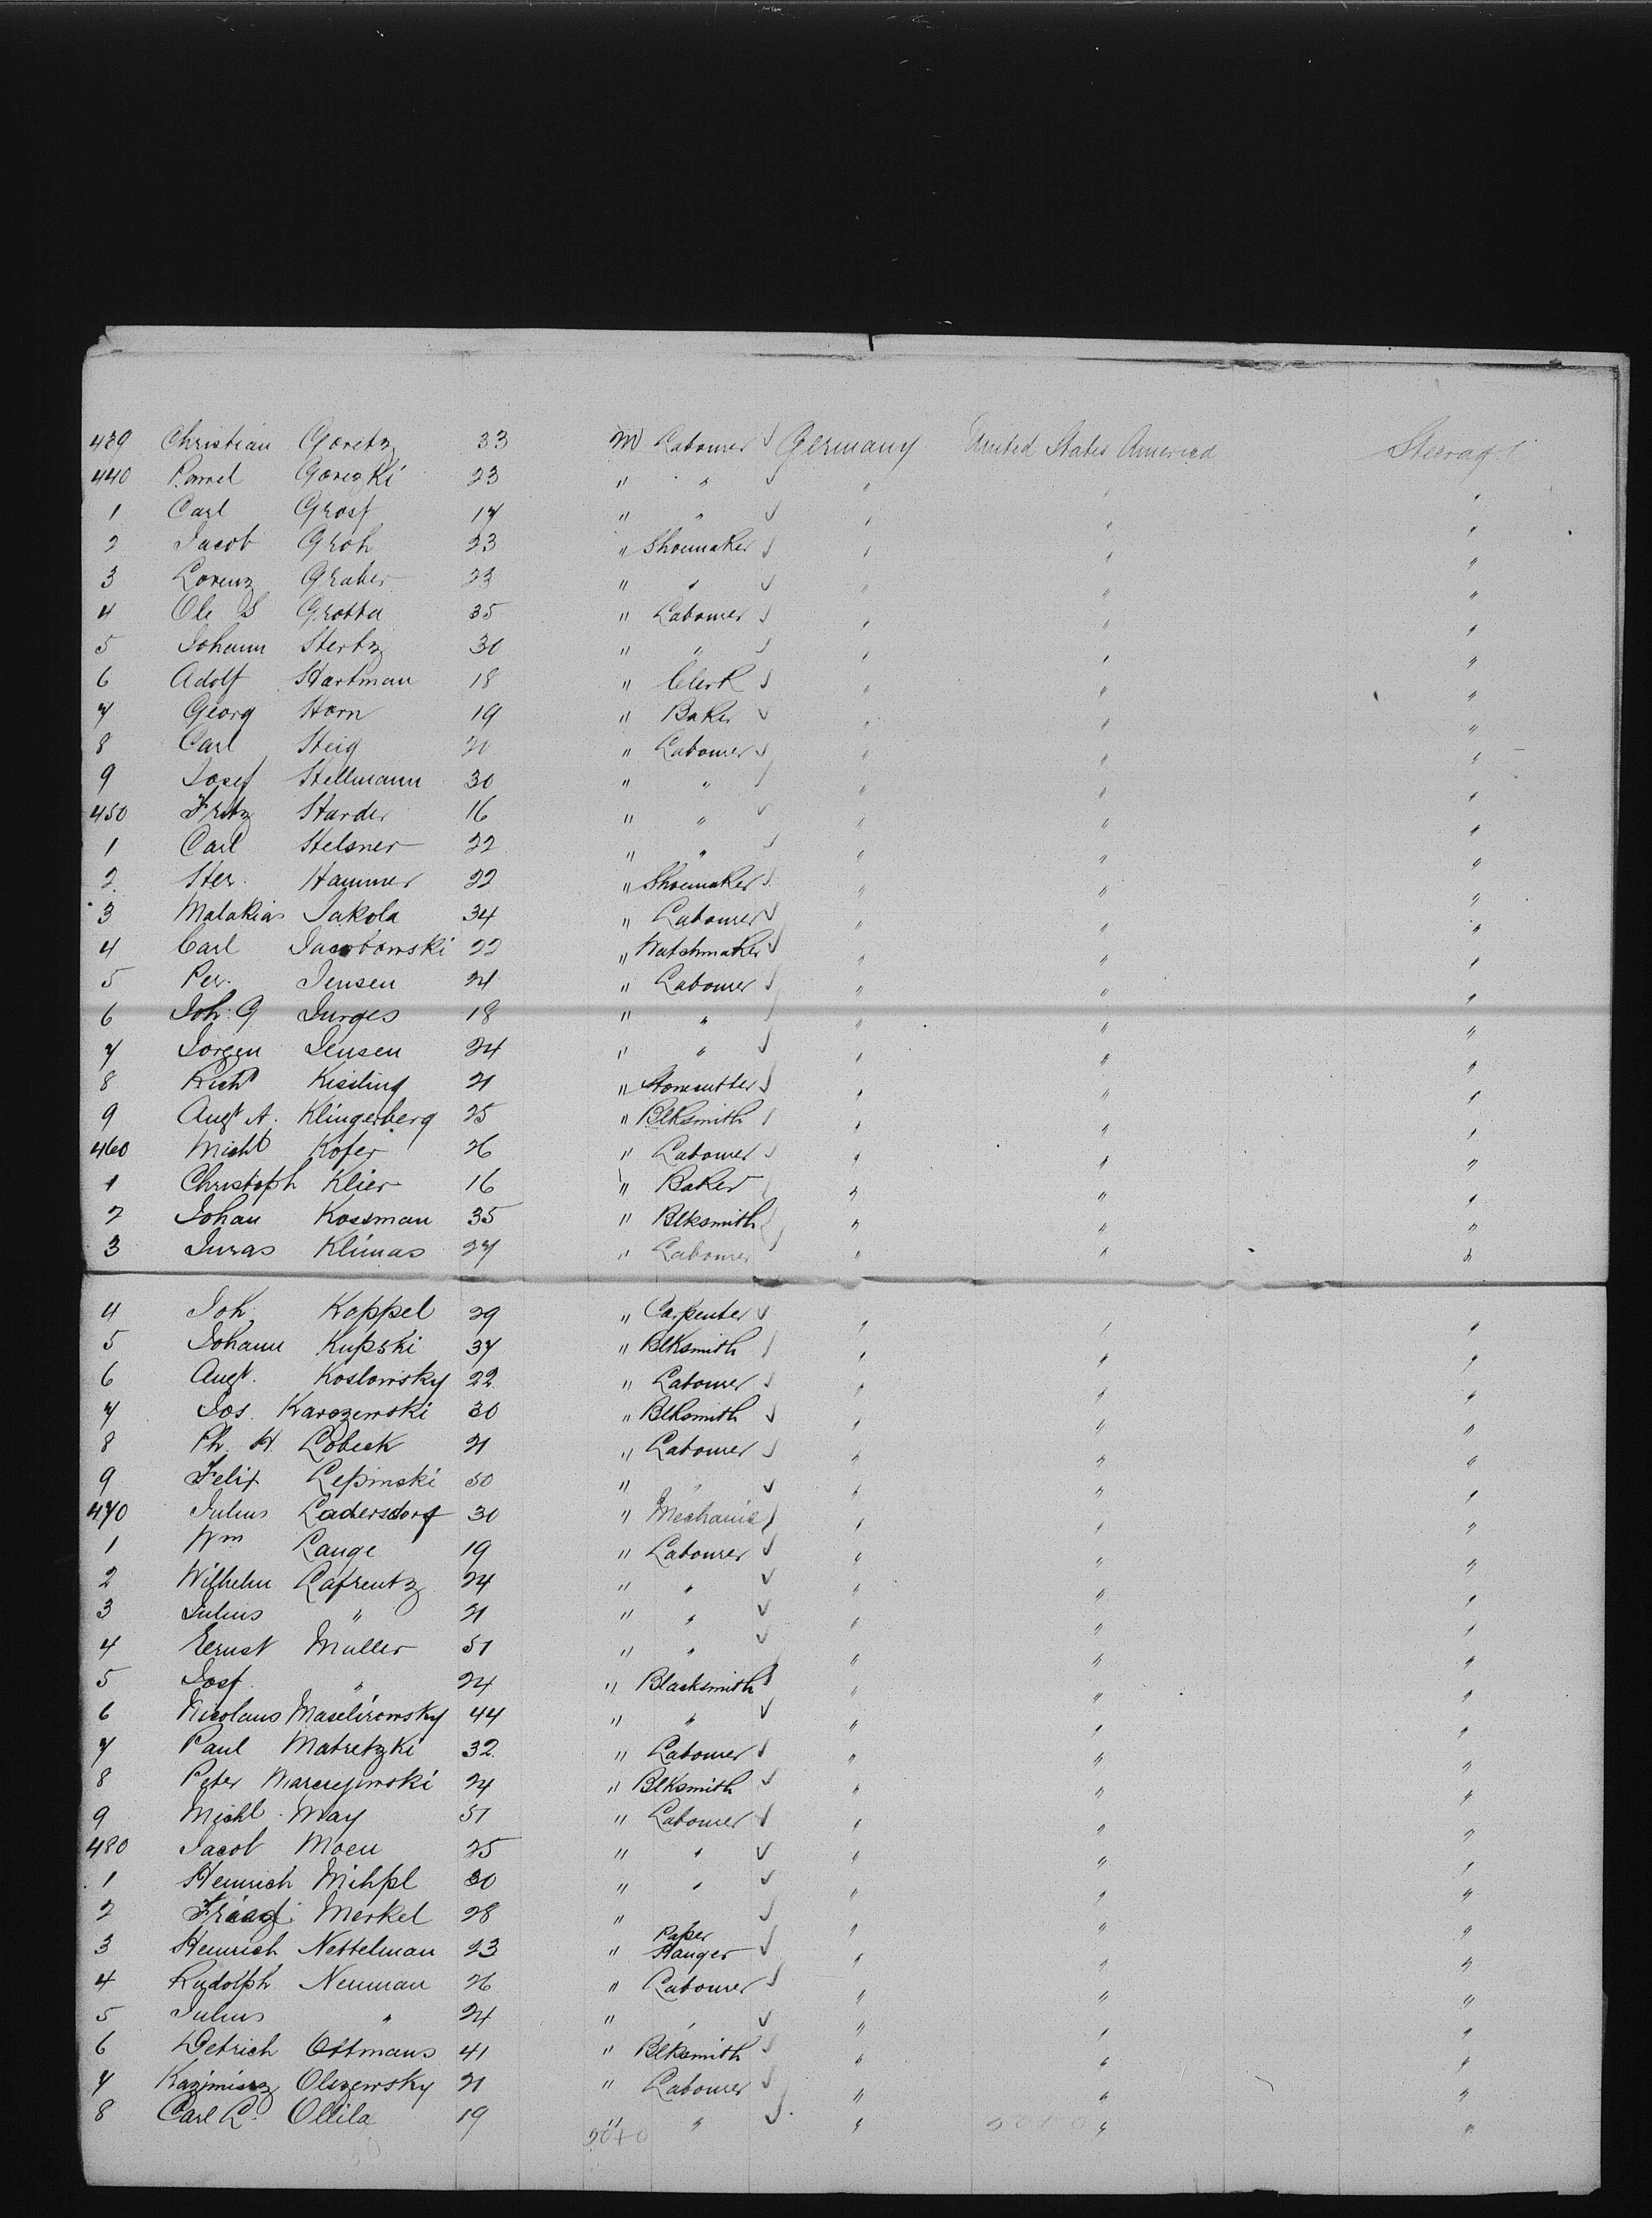 439 Christian Goretz 33 M Labourer Germany United States America Steerage
440 Pawel Gorezki 23 " " " " "
1 Carl Grosf 17 " " " " "
2 Jacob Groh 23 " Shoemaker " " "
3 Lorenz Graber 23 " " " " "
4 Ole S Grotta 35 " Labourer " " "
5 Johann Hertz 30 " " " " "
6 Adolf Hartman 18 " Clerk " " "
7 Georg Horn 19 " Baker " " "
8 Carl Heig 20 " Labourer " " "
9 Josef Hellmann 30 " " " " "
450 Fritz Harder 16 " " " " "
1 Carl Helsner 22 " " " " "
2 Hammer 22 " Shoemaker " " "
3 Malakias Jakola 34 " Labourer " " "
4 Carl Jacobowski 22 " Watchmaker " " "
5 Per. Jensen 24 " Labourer " " "
6 Joh: G Jurges 18 " " " " "
7 Jorgen Jensen 24 " " " " "
8 Richd Kissling 21 " Stonecutter " " "
9 Augt A. Klingerberg 25 " Blksmith " " "
460 Michl Kofer 26 " Labourer " " "
1 Christoph Klier 16 " Baker " " "
2 Johan Kossman 35 " Blksmith " " "
3 Juras Klimas 27 " Labourer " " "
4 Joh. Koppel 29 " Carpenter " " "
5 Johann Kupski 37 " Blksmith " " "
6 Augt. Koslowsky 22 " Labourer " " "
7 Jos. Karozewski 30 " Blksmith " " "
8 Ph. H. Lobeck 21 " Labourer " " "
9 Felix Lepinski 50 " " " " "
470 Julius Ladersdorf 30 " Mechanic " " "
1 Wm Lange 19 " Labourer " " "
2 Wilhelm Lafrentz 24 " " " " "
3 Julius " 21 " " " " "
4 Ernst Muller 51 " " " " "
5 Josf. " 24 " Blacksmith " " "
6 Nicolaus Maselirowsky 44 " " " " "
7 Paul Matretzki 32 " Labourer " " "
8 Peter 24 " Blksmith " " "
9 Michl. May 51 " Labourer " " "
480 Jacob Moen 25 " " " " "
1 Heinrich Mihpl 30 " " " " "
2 Merkel 28 " " " "
3 Heinrich Nettelman 23 " Paper Hanger " " "
4 Rudolph Neuman 26 " Labourer " " "
5 Julius " 24 " " " " "
6 Detrich Ottmans 41 " Blksmith " " "
7 Kazimierz Olszewsky 21 " Labourer " " "
8 Carl L. Ollila 19 " " " " "